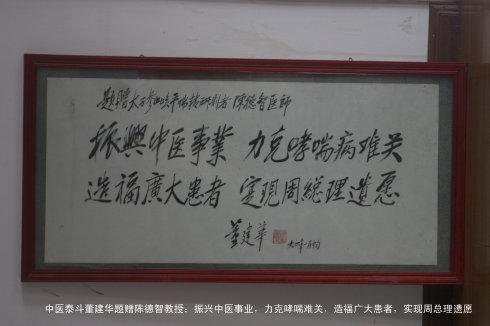 振興中医事業 力克哮喘病难关
造福廣大患者 实现周总理遗愿
董建華
中医泰斗董建华题赠陈德智教授：振兴中医事业，力克哮喘难关，造福广大患者，实现周总理遗愿